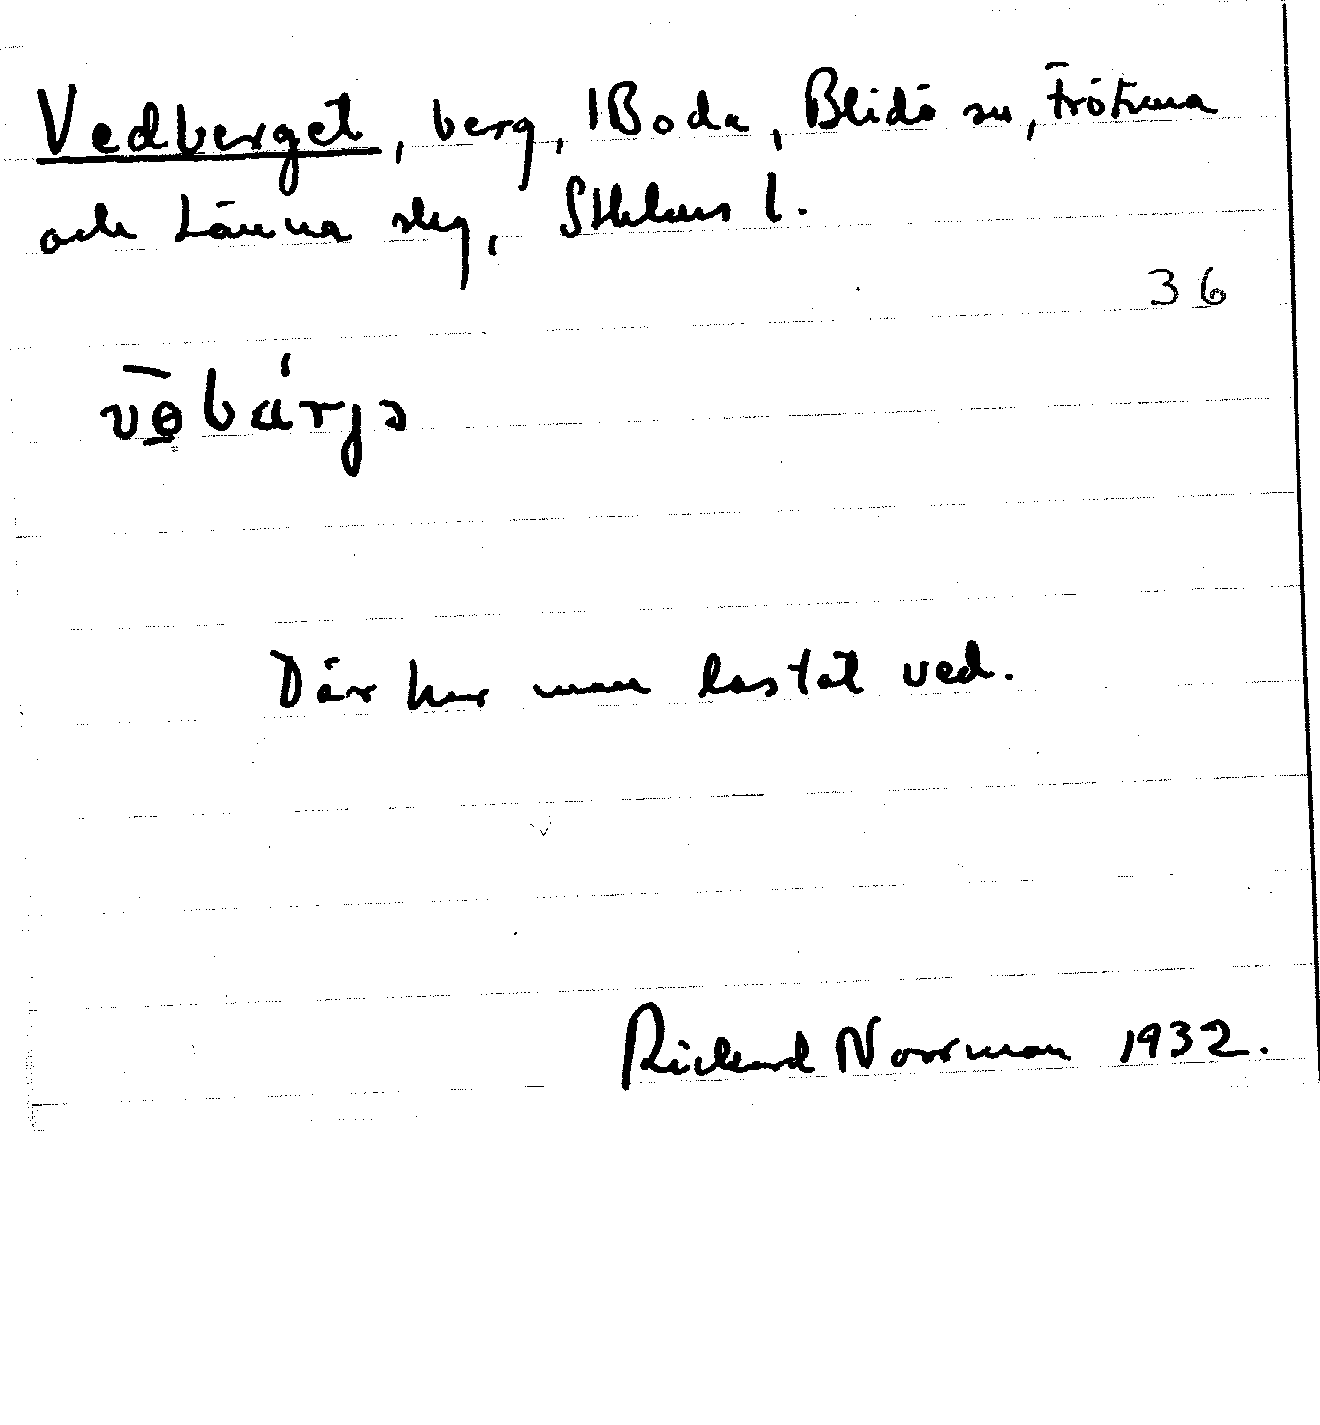 Vedberget, berg, Boda, Blidö sn, Frötuna
och Länna slg, Sthlms l.
36
vɵ̄bárjə
Där har man lastat ved.
Rickard Norrman 1932.